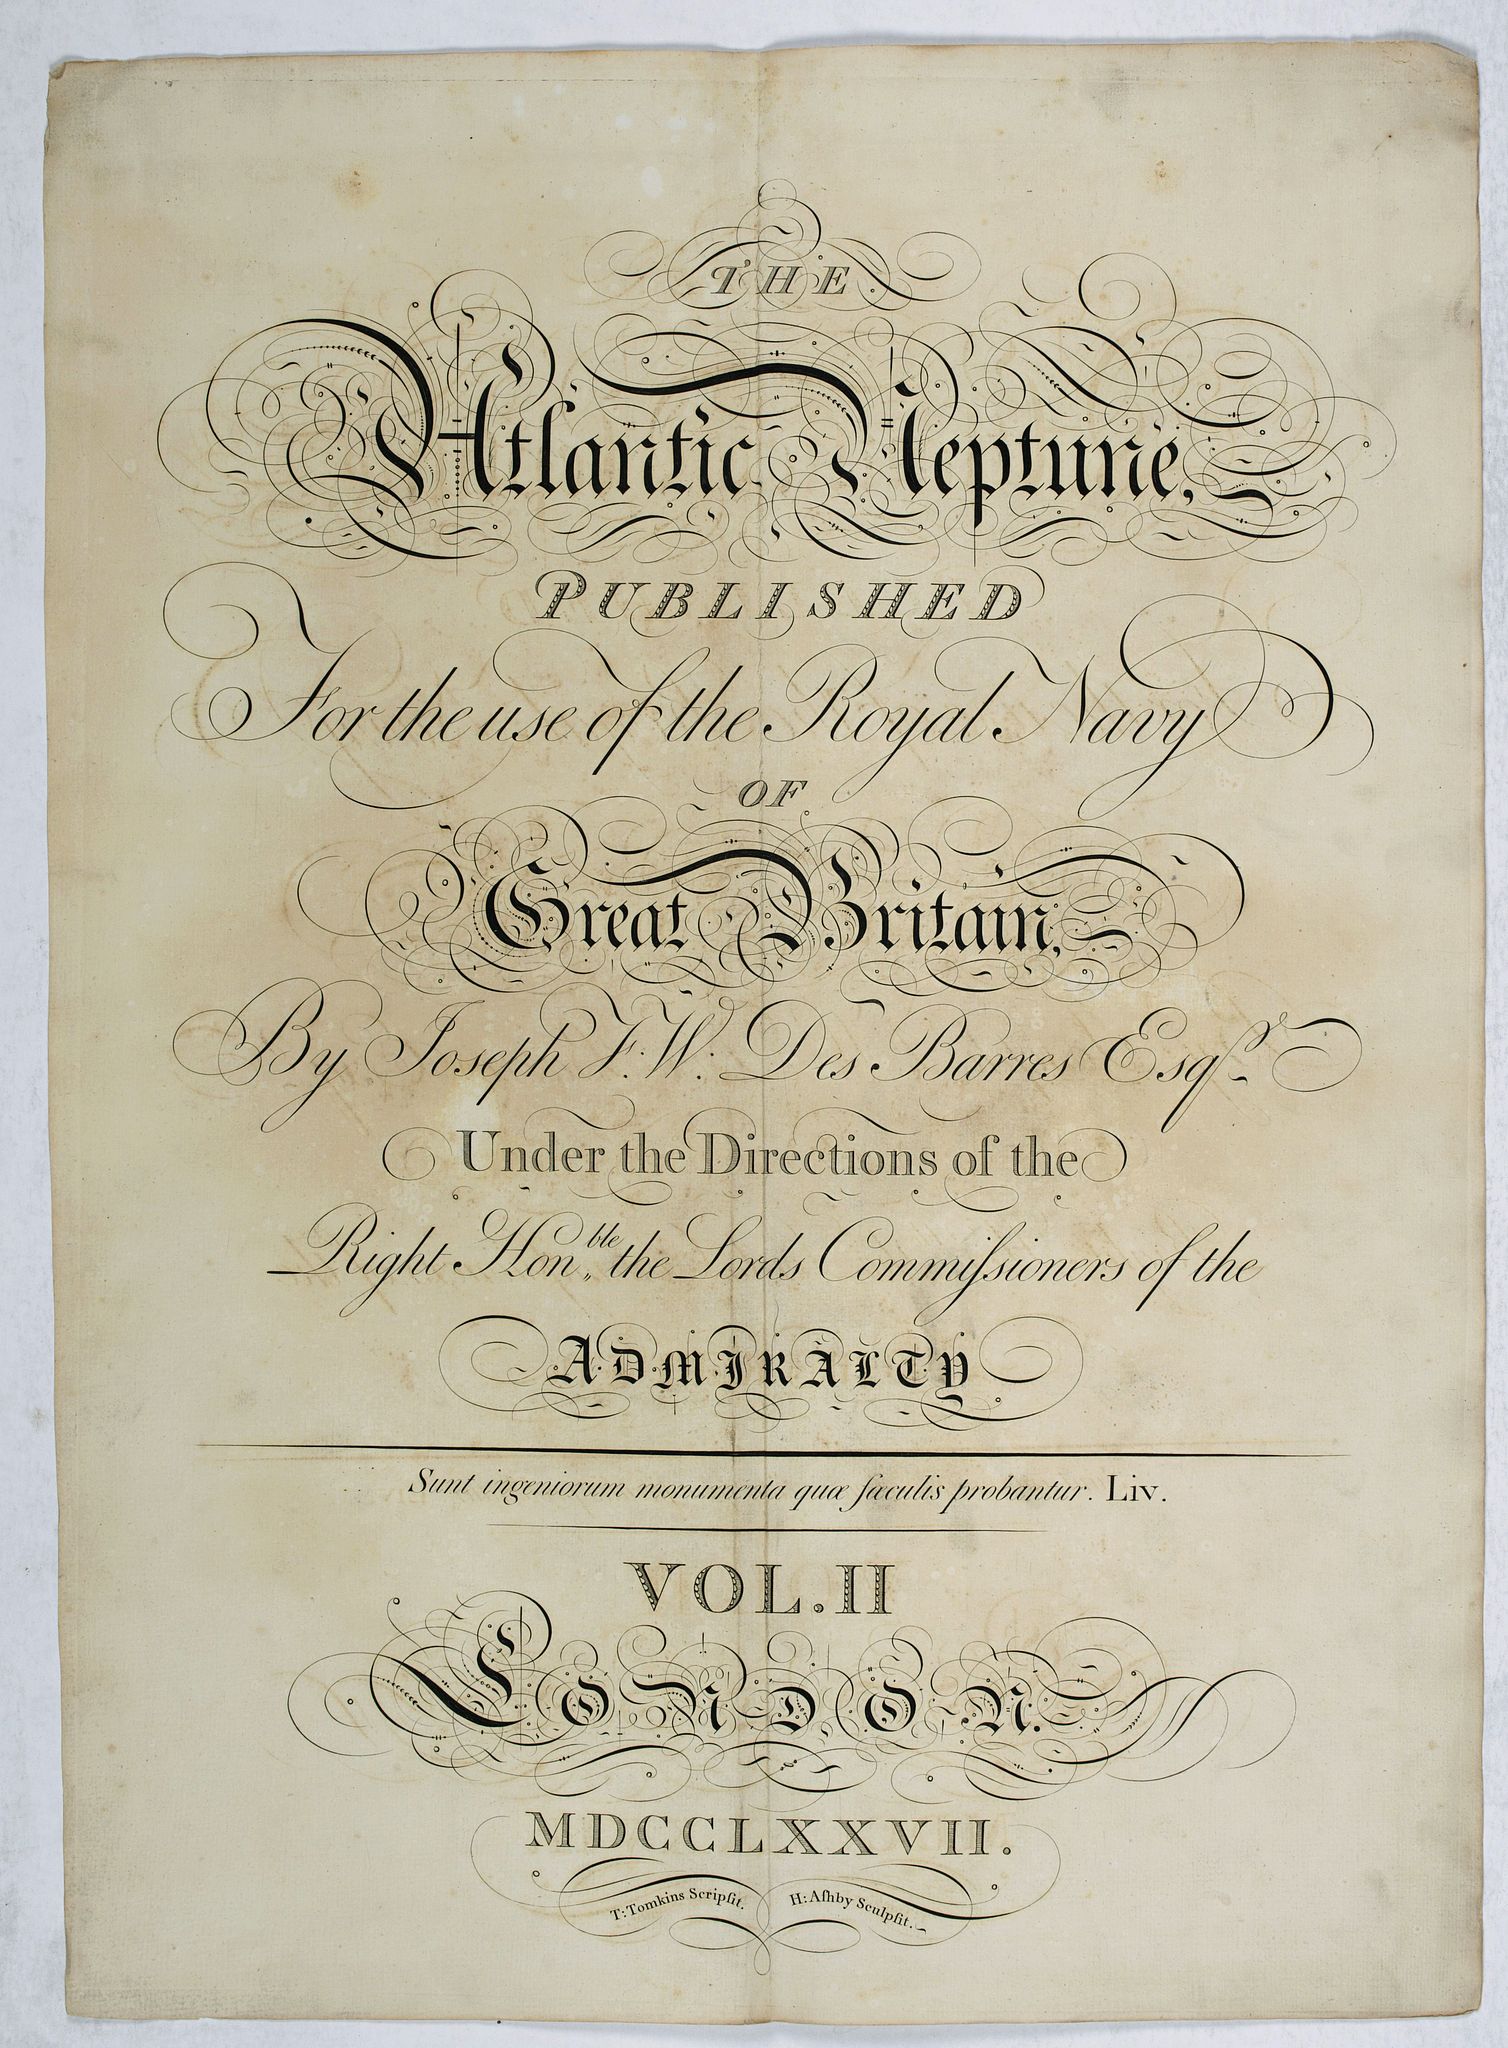 THE
Atlantic Neptune,
PUBLISHED
For the use of the Royal Navy
OF
Great Britain,
By Joseph F. W. Des Barres Esqr.
Under the Directions of the
Right Honble. the Lords Commiſsioners of the
ADMIRALTY
Sunt ingeniorum monumenta quæ ſæculis probantur. Liv.
VOL. II
LONDON.
MDCCLXXVII.
T: Tomkins Scripſit. H: Aſhby Sculpſit.